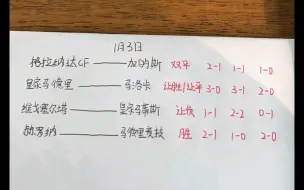 1月3日
格拉纳达CF——加的斯 双平 2-1 1-1 1-0
皇家马德里——马洛卡 让胜/让平 3-0 3-1 2-0
维戈塞尔塔——皇家贝蒂斯 让负 1-1 2-2 0-1
赫罗纳——马德里竞技 胜 2-1 1-0 2-0